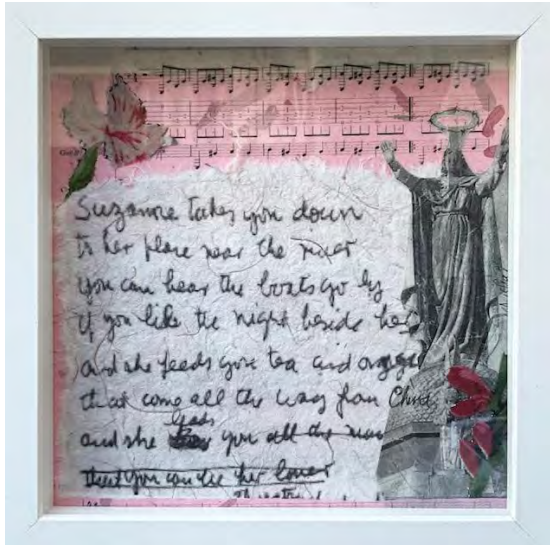 Suzanne takes you down
to her place near the river
you can hear the boats go by
If you like the night beside her
and she feeds you tea and oranges
that come all the way from China
and she you all the
that you can be her lover